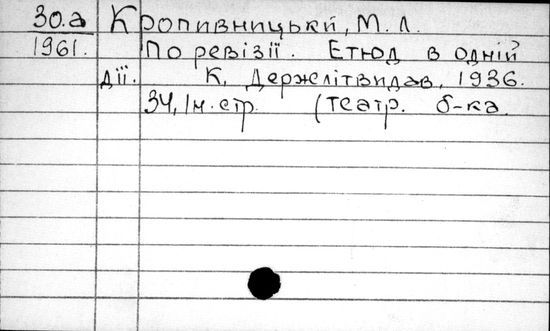 30.а Кропивницькй, М. Л.
1961. По ревізії. Етюд в одній
дії. К, Держлітвидав, 1936.
34, 1н. стр. (театр. б-ка.